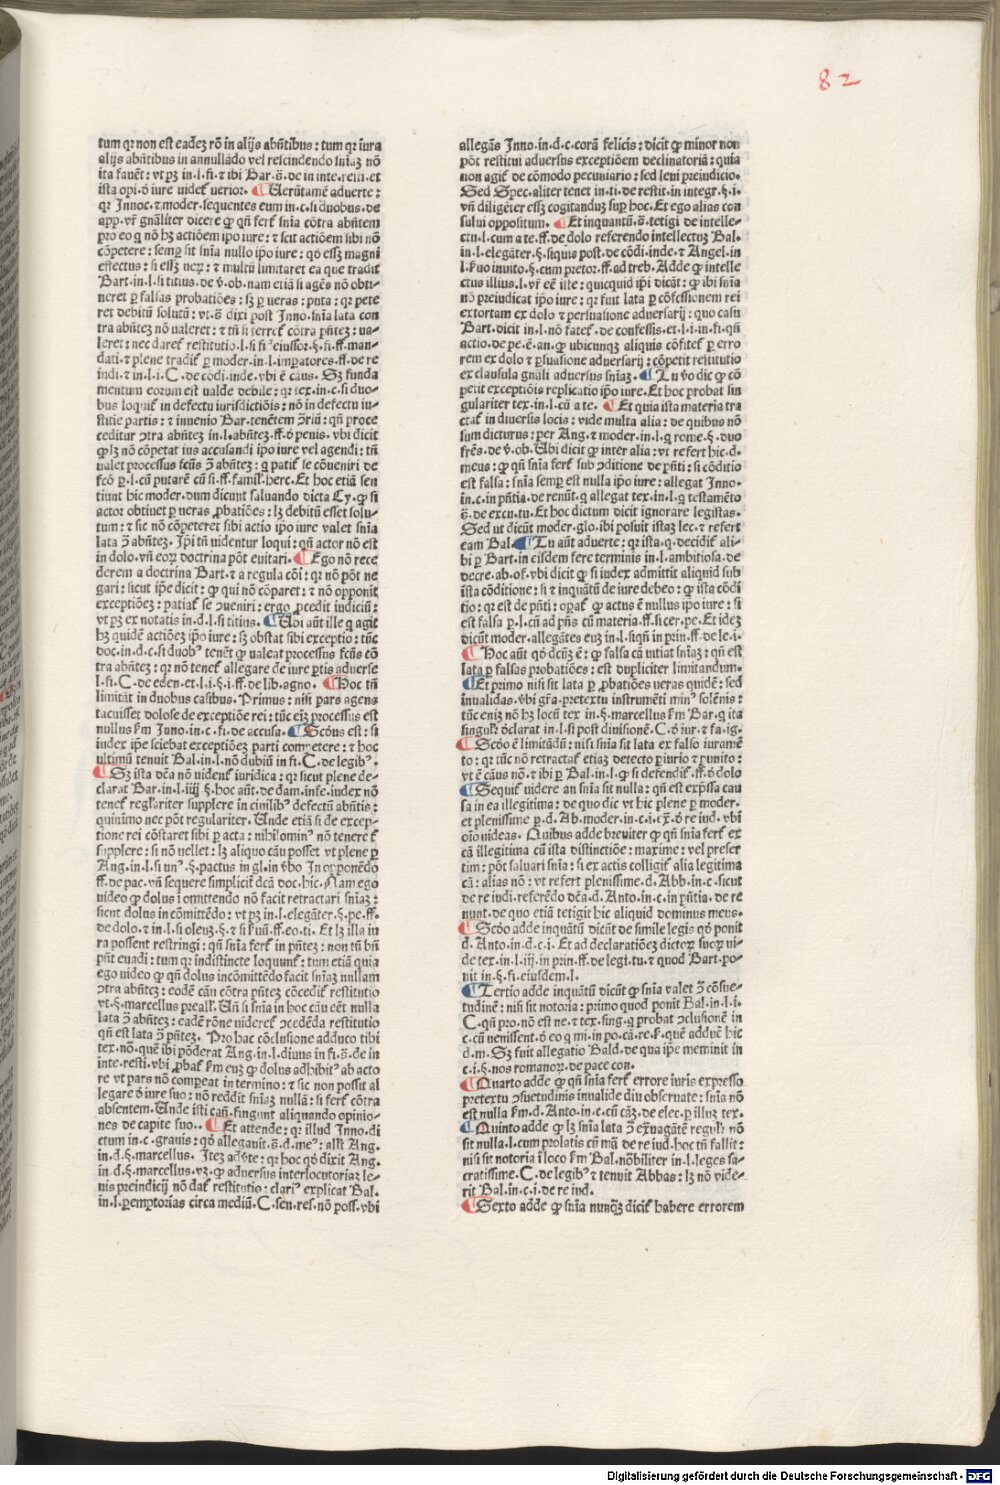 82
tum qr non est eadeʒ rō in alijs abñtibus : tum qr iura
alijs abñtibus in annullādo vel rescindendo sñiaʒ nō
ista opi. ō iure videt᷑ verior. ¶ Uerūtamē aduerte :
qr Innoc. ⁊ moder. sequentes eum in. c. si duobus. de
app. vr̄ gnāliter dicere ꝙ qñ fert᷑ sñia cōtra abñtem
pro eo q nō hʒ actiōem ipo iure : ⁊ scit actiōem sibi nō
cōpetere : semp̱ sit sñia nullo ipo iure : qō essʒ magni
effectus : si essʒ ueꝝ : ⁊ multū limitaret ea que tradit
Bart. in. l. si titius. de v̄. ob. nam etiā si agēs nō obti-
neret p̱ falsas probatiōes : lʒ p̱ ueras : puta : qr pete
ret debitū solutū : vt. s̄. dixi post Inno. sñia lata con
tra abñteʒ nō ualeret : ⁊ tñ si ferret᷑ cōtra pñteʒ : ua-
dati. ⁊ plene tradit᷑ p̱ moder. in. l. impatores. ff. de re
iudi. ⁊ in. l. i. C. de cōdi. inde. vbi ē cāus. Sʒ funda
mentum eorum est ualde debile : qr tex. in. c. si duo-
bus loquit᷑ in defectu iurisdictiōis : nō in defectu iu-
stitie partis : ⁊ inuenio Bar. tenētem ↄ̄riū : qñ proce
ceditur ↄtra abñteʒ in. l. abñteʒ. ff. ō penis. vbi dicit
ꝙ lʒ nō cōpetat ius accusandi ipo iure vel agendi : tñ
ualet processus fctūs ↄ̄ abñteʒ : q patit᷑ se cōueniri de
tiunt hic moder. dum dicunt saluando dicta Cy. ꝙ si
actor obtinet p̱ ueras ꝓbatiōes : lʒ debitū esset solu-
tum : ⁊ sic nō cōpeteret sibi actio ipo iure valet sñia
lata ↄ̄ abñteʒ. Ipi tñ uidentur loqui : qñ actor nō est
in dolo. vñ eoꝝ doctrina pōt euitari. ¶ Ego nō rece
derem a doctrina Bart. ⁊ a regula cōi : qr nō pōt ne
gari : sicut ipe dicit : ꝙ qui nō cōparet : ⁊ nō opponit
exceptiōeʒ : patiat᷑ se ↄueniri : ergo ꝓcedit iudiciū :
vt pʒ ex notatis in. d. l. si titius. ¶ Ubi aūt ille q agit
hʒ quidē actiōeʒ ipo iure : sʒ obstat sibi exceptio : tūc
doc. in. d. c. si duobꝰ tenēt ꝙ ualeat processus fcūs cō
tra abñteʒ : qr nō tenet᷑ allegare de iure p̱tis aduerse
l. fi. C. de eden. et. l. i. §. i. ff. de lib. agno. ¶ Hoc tñ
limitāt in duobus casibus. Primus : nisi pars agens
tacuisset dolose de exceptiōe rei : tūc eiꝫ processus est
nullus km Inno. in. c. fi. de accusa. ¶ Scōus est : si
iudex ipe sciebat exceptiōeʒ parti competere : ⁊ hoc
ultimū tenuit Bal. in. l. nō dubiū in fi. C. de legibꝰ.
¶ Sʒ ista dēa nō uident᷑ iuridica : qr sicut plene de-
clarat Bar. in. l. iiij §. hoc aūt. de dam. infe. iudex nō
tenet᷑ regl̄ariter supplere in ciuilibꝰ defectū abñtis :
quinimo nec pōt regulariter. Unde etiā si de excep-
tione rei cōstaret sibi p̱ acta : nihilominꝰ nō teneret᷑
supplere : si nō vellet : lʒ aliquo cāu posset vt plene p̱
Ang. in. l. si unꝰ. §. pactus in gl. in v̄bo In opponēdo
ff. de pac. vñ sequere simplicit᷑ dcā doc. hic. Nam ego
video ꝙ dolus i omittendo nō facit retractari sñiaʒ :
sicut dolus in cōmittēdo : vt pʒ in. l. eleganter. §. pe. ff.
de dolo. ⁊ in. l. si oleuʒ. §. ⁊ si ẖuū. ff. eo. ti. Et lʒ illa iu
ra possent restringi : qñ sñia fert᷑ in pñteʒ : non tñ bñ
pñt euadi : tum qr indistincte loquunt᷑ : tum etiā quia
ego video ꝙ qñ dolus incōmittēdo facit sñiaʒ nullam
ↄtra abñteʒ : eodē cāu cōtra pñteʒ cōcedit᷑ restitutio
vt. §. marcellus preall. Uñ si sñia in hoc cāu eēt nulla
lata ↄ̄ abñteʒ : eadē rōne uideret᷑ ↄcedēda restitutio
qñ est lata ↄ̄ pñteʒ. Pro hac cōclusione adduco tibi
tex. nō. quē ibi pōderat Ang. in. l. diuus in fi. s̄. de in
inte. resti. vbi ꝓbat᷑ km euʒ ꝙ dolus adhibitꝰ ab acto
re vt pars nō compeat in termino : ⁊ sic non possit al
legare ō iure suo : nō reddit sñiaʒ nullā : si fert᷑ cōtra
absentem. Unde isti cañ. fingunt aliquando opinio-
nes de capite suo. ¶ Et attende : qr illud Inno. di
ctum in. c. grauis : qō allegauit. s̄. d. meꝰ : all̄t Ang.
in. d. §. marcellus. Itez adv̄te : qr hoc qō dixit Ang.
in. d. §. marcellus. vʒ. ꝙ aduersus interlocutoriaʒ le-
uis preiudicij nō dat᷑ restitutio : clariꝰ explicat Bal.
in. l. p̱emptorias circa mediū. C. sen. res. nō poss. vbi
allegās Inno. in. d. c. corā felicis : dicit ꝙ minor non
pōt restitui aduersus exceptiōem declinatoriā : quia
non agit᷑ de cōmodo pecuniario : sed leui preiudicio.
Sed Spec. aliter tenet in. ti. de restit. in integr. §. i.
vñ diligēter essʒ cogitanduʒ sup̱ hoc. Et ego alias con
sului oppositum. ¶ Et inquantū. s̄. tetigi de intelle-
ctu. l. cum a te. ff. de dolo referendo intellectuʒ Bal.
in. l. elegāter. §. siquis post. de cōdi. inde. ⁊ Angel. in
l. ẖuo inuito. §. cum pretor. ff. ad treb. Adde ꝙ intelle
ctus illius. l. vr̄ eē iste : quicquid ipi dicāt : ꝙ ibi sñia
nō preiudicat ipo iure : qr fuit lata p̱ cōfessionem rei
extortam ex dolo ⁊ persuasione aduersarij : quo casu
Bart. dicit in. l. nō fatet᷑. de confessis. et. l. i. in. fi. qñ
actio. de pe. ē. an. ꝙ ubicunqʒ aliquis cōfitet᷑ p̱ erro
rem ex dolo ⁊ p̱suasione aduersarij : cōpetit restitutio
ex clausula gnali aduersus sñiaʒ. ¶ Tu v̄o dic ꝙ cō
petit exceptiōis replicatio ipo iure. Et hoc probat sin
gulariter tex. in. l. cū a te. ¶ Et quia ista materia tra
ctat᷑ in diuersis locis : vide multa alia : de quibus nō
sum dicturus : per Ang. ⁊ moder. in. l. q rome. §. duo
fr̄es. de v̄. ob. Ubi dicit ꝙ inter alia : vt refert hic. d.
meus : ꝙ qñ sñia fert᷑ sub ↄditione de pñti : si cōditio
est falsa : sñia semp̱ est nulla ipo iure : allegat Inno.
in. c. in pñtia. de renūt. q allegat tex. in. l. q testamēto
s̄. de excu. tu. Et hoc dictum dicit ignorare legistas.
Sed ut dicūt moder. glo. ibi posuit istaʒ lec. ⁊ refert
eam Bal. ¶ Tu aūt aduerte : qr ista. q. decidit᷑ ali-
bi p̱ Bart. in eisdem fere terminis in. l. ambitiosa. de
decre. ab. of. vbi dicit ꝙ si iudex admittit aliquid sub
ista cōditione : si ⁊ inquātū de iure debeo : ꝙ ista cōdi
tio : qr est de pñti : opat᷑ ꝙ actus ē nullus ipo iure : si
est falsa p̱. l. cū ad pñs cū materia. ff. si cer. pe. Et ideʒ
dicūt moder. allegātes euʒ in. l. siqñ in prin. ff. de le. i.
¶ Hoc aūt qō dcūʒ ē : ꝙ falsa cā uitiat sñiaʒ : qñ est
lata p̱ falsas probatiōes : est dupliciter limitandum.
¶ Et primo nisi sit lata p̱ ꝓbatiōes ueras quidē : sed
inualidas. vbi gr̄a. pretextu instrumēti minꝰ solēnis :
tūc enīʒ nō hʒ locū tex in. §. marcellus km Bar. q ita
singul᷑r ōclarat in. l. si post diuisionē. C. ō iur. ⁊ fa. ig.
¶ Scōo ē limitādū : nisi sñia sit lata ex falso iuramē
to : qr tūc nō retractat᷑ etiaʒ detecto p̱iurio ⁊ punito :
vt ē cāus nō. ⁊ ibi p̱ Bal. in. l. ꝙ si defendit᷑. ff. ō dolo
¶ Sequit᷑ videre an sñia sit nulla : qñ est exp̱ssa cau
sa in ea illegitima : de quo dic vt hic plene p̱ moder.
et plenissime p̱. d. Ab. moder. in. c. i. ex̄. ō re iud. vbi
oīo videas. Quibus adde breuiter ꝙ qñ sñia fert᷑ ex
cā illegitima cū ista distinctiōe : maxime : vel preser
tim : pōt saluari sñia : si ex actis colligit᷑ alia legitima
cā : alias nō : vt refert plenissime. d. Abb. in. c. sicut
de re iudi. referēdo dēa. d. Anto. in. c. in pñtia. de re
nunt. de quo etiā tetigit hic aliquid dominus meus.
¶ Scōo adde inquātū dicūt de simile legis qō ponit
d. Anto. in. d. c. i. Et ad declaratiōeʒ dictoꝝ suoꝝ ui-
de tex. in. l. iij. in prin. ff. de legi. tu. ⁊ quod Bart. po-
nit in. §. fi. eiusdem. l.
¶ Tertio adde inquātū dicūt ꝙ sñia valet ↄ̄ cōsue-
tudinē : nisi sit notoria : primo quod ponit Bal. in. l. i.
C. qñ pro. nō est ne. ⁊ tex. sing. q probat ↄclusionē in
c. cū uenissent. ō eo q mi. in po. cā. re. k̄. quē adducē hic
d. m. Sʒ fuit allegatio Bald. de qua ipe meminit in
c. i. §. nos romanoꝝ. de pace con.
¶ Quarto adde ꝙ qñ sñia fert᷑ errore iuris expresso
pretextu ↄsuetudinis inualide diu obseruate : sñia nō
est nulla km. d. Anto. in. c. cū cāʒ. de elec. p̱ illuʒ tex.
¶ Quinto adde ꝙ lʒ sñia lata ↄ̄ ex̄uagātē regul᷑r nō
sit nulla. l. cum prolatis cū mā de re iud. hoc tñ fallit :
nisi sit notoria ī loco km Bal. nōbiliter in. l. leges sa-
cratissime. C. de legibꝰ ⁊ tenuit Abbas : lʒ nō vide-
rit Bal. in. c. i. de re iud.
¶ Sexto adde ꝙ sñia nunq̄ʒ dicit᷑ habere errorem
Digitalisierung gefördert durch die Deutsche Forschungsgemeinschaft - DFG